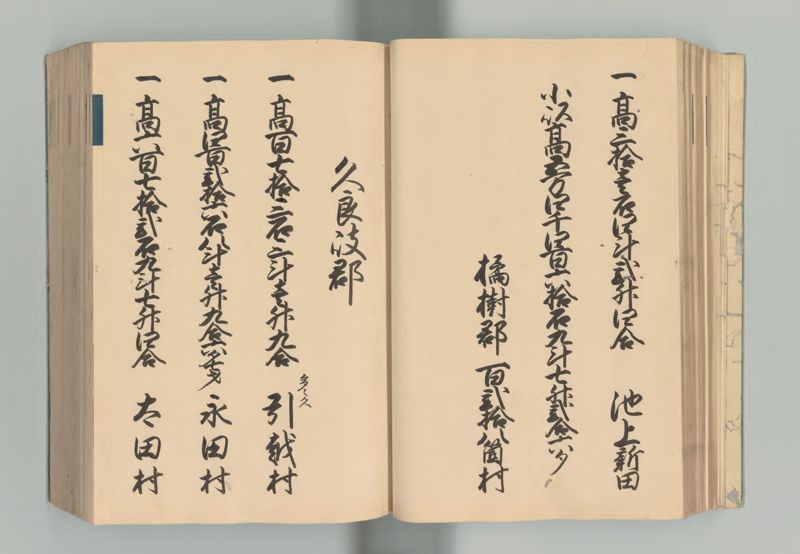 一高三拾壱石四斗弐升四合　池上新田
小以高五万四千四百六拾石九斗七升弐合六夕
橘樹郡　百弐拾八箇村
久良岐郡
一高百七拾三石三斗壱升九合　引越村
一高四百弐拾六石八斗壱升九合六勺　永田村
一高六百七拾弐石九斗七升四合　太田村